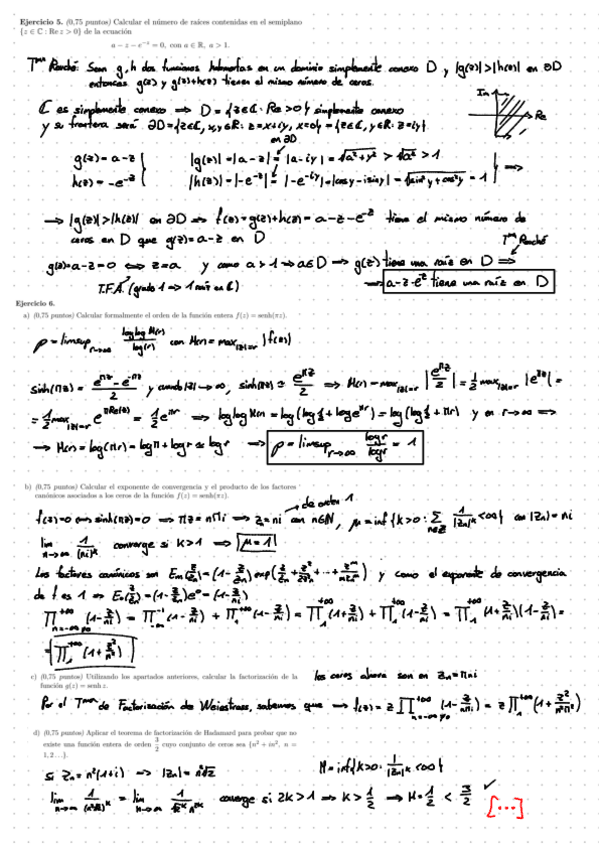 Ejercicio 5. (0,75 puntos) Calcular el número de raíces contenidas en el semiplano
{z ∈ ℂ : Re z > 0} de la ecuación
a − z − e^{−z} = 0, con a ∈ ℝ, a > 1.
Tma Rouché: Sean g, h dos funciones holomorfas en un dominio simplemente conexo D y |g(z)|>|h(z)| en ∂D
entonces g(z) y g(z)+h(z) tienen el mismo número de ceros.
ℂ es simplemente conexo ⟹ D={z∈ℂ: Re>0} simplemente conexo
y su frontera será ∂D={z∈ℂ, x,y∈ℝ: z=x+iy, x=0}={z∈ℂ, y∈ℝ: z=iy}
Im
Re
en ∂D
g(z)=a-z |g(z)|=|a-z|=|a-iy|=√(a²+y²) > √a² > 1
h(z)=-e^{-z} |h(z)|=|-e^{-z}|=|-e^{-iy}|=|cosy-isiny|=√(sin²y+cos²y)=1 ⟹
⟹ |g(z)|>|h(z)| en ∂D ⟹ f(z)=g(z)+h(z)=a-z-e^{-z} tiene el mismo número de
ceros en D que g(z)=a-z en D
Tma Rouché
g(z)=a-z=0 ⟺ z=a y como a>1 ⟹ a∈D ⟹ g(z) tiene una raíz en D ⟹
T.F.A. (grado 1 ⟹ 1 raíz en ℂ) ⟹ a-z-e^{-z} tiene una raíz en D
Ejercicio 6.
a) (0,75 puntos) Calcular formalmente el orden de la función entera f(z) = senh(πz).
ρ=limsup_{r→∞} loglog M(r)/log(r) con M(r)=max_{|z|=r} |f(z)|
sinh(πz)=(e^{πz}-e^{-πz})/2 y cuando |z|→∞, sinh(πz)≃e^{πz}/2 ⟹ M(r)=max_{|z|=r} |e^{πz}/2|=1/2 max_{|z|=r} |e^{πz}|=
=1/2 max_{|z|=r} e^{πRe(z)}=1/2 e^{πr} ⟹ loglog M(r)=log(log 1/2+log e^{πr})=log(log 1/2+πr) y en r→∞ ⟹
⟹ M(r)=log(πr)=logπ+logr≃logr ⟹ ρ=limsup_{r→∞} logr/logr=1
b) (0,75 puntos) Calcular el exponente de convergencia y el producto de los factores
canónicos asociados a los ceros de la función f(z) = senh(πz).
de orden 1
f(z)=0 ⟺ sinh(πz)=0 ⟹ πz=nπi ⟹ z=ni con n∈ℕ, μ=inf{k>0: Σ_{n∈ℤ} 1/|zn|^k <∞} con |zn|=ni
lim_{n→∞} 1/(ni)^k converge si k>1 ⟹ μ=1
Los factores canónicos son Em(z/zn)=(1-z/zn)exp(z/zn+z²/2zn²+...+z^m/mzn^m) y como el exponente de convergencia
de f es 1 ⟹ En(z/zn)=(1-z/zn)e⁰=(1-z/ni)
∏_{n=-∞≠0}^{+∞} (1-z/ni)=∏_{-∞}^{-1} (1-z/ni)+∏_{1}^{+∞} (1-z/ni)=∏_1^{+∞} (1+z/ni)+∏_1^{+∞} (1-z/ni)=∏_1^{+∞} (1+z/ni)(1-z/ni)=
=∏_1^{+∞} (1+z²/n²)
c) (0,75 puntos) Utilizando los apartados anteriores, calcular la factorización de la
función g(z) = senh z.
los ceros ahora son en zn=πni
Por el Tma de Factorización de Weierstrass, sabemos que ⟹ f(z)=z∏_{n=-∞≠0}^{+∞} (1-z/ni)=z∏_1^{+∞} (1+z²/n²π²)
d) (0,75 puntos) Aplicar el teorema de factorización de Hadamard para probar que no
existe una función entera de orden 3/2 cuyo conjunto de ceros sea {n² + in², n =
1, 2 …}.
si zn=n²(1+i) ⟹ |zn|=n²√2 M=inf{k>0: 1/|zn|^k <∞}
lim_{n→∞} 1/(n²√2)^k=lim_{n→∞} 1/√2^k n^{2k} converge si 2k>1 ⟹ k>1/2 ⟹ M=1/2 < 3/2 ✓
[...]